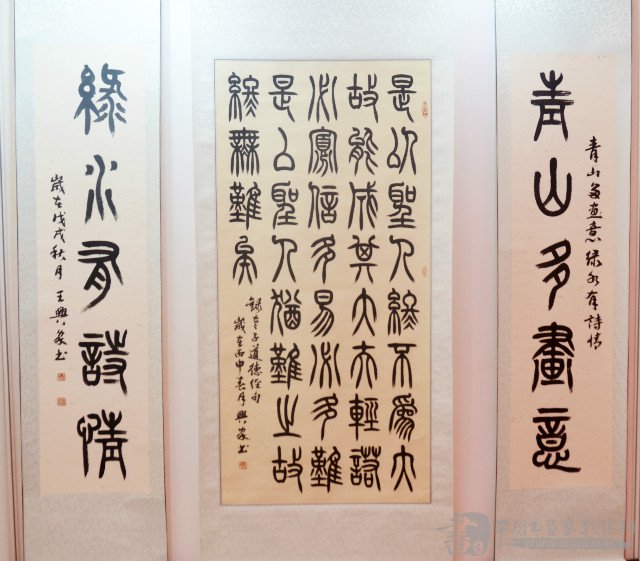 青山多畫意
青山多畫意綠水有詩情
是以聖人終不爲大
故能成其大夫輕諾
必寡信多易必多難
是以聖人猶難之故
終無難矣
錄老子道德經句
歲在丙申春月興家书
綠水有詩情
歲在戊戌秋月王興家书